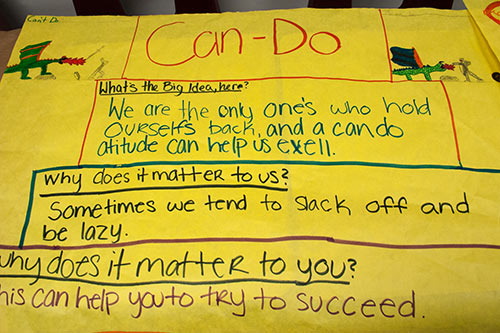 Can't Do
Can-Do
What's the Big Idea, here?
We are the only one's who hold
ourselfs back, and a can do
atitude can help us exell.
Why does it matter to us?
Sometimes we tend to slack off and
be lazy.
Why does it matter to you?
his can help you to try to succeed.